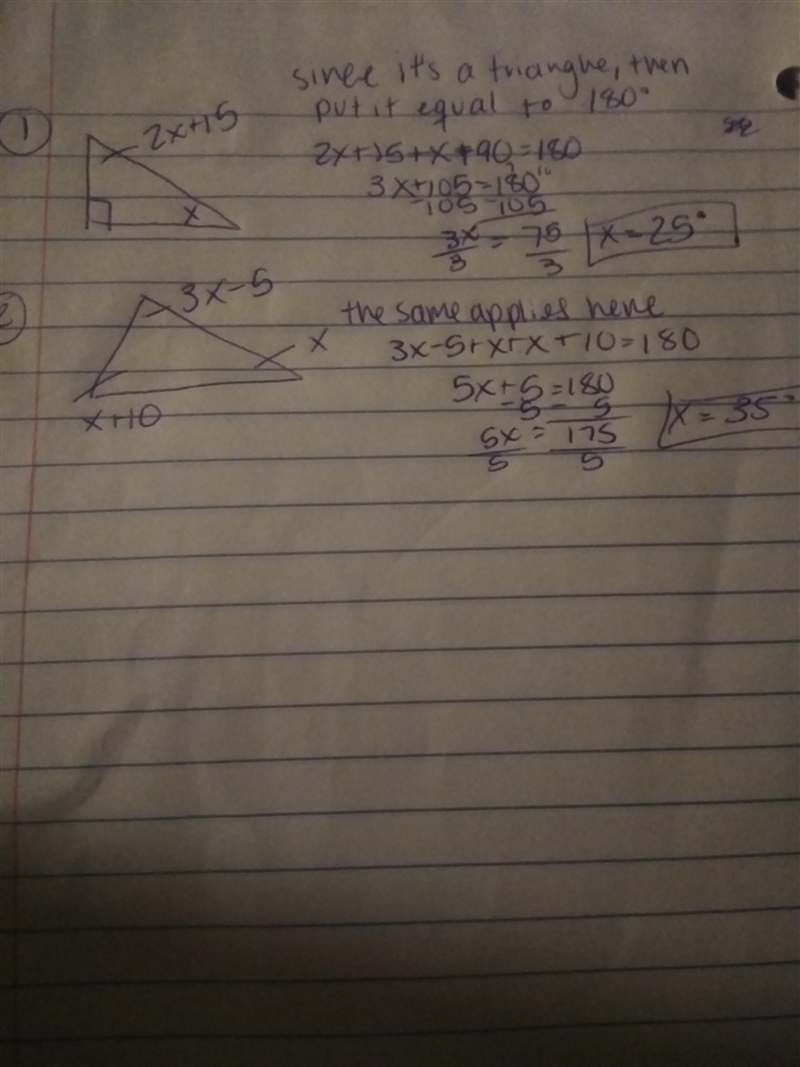 since it's a triangne, then
put it equal to 180°
1
2x+15
x
2x+15+x+90=180
3x+105=180°
-105 -105
3x = 75
3 3
x=25°
2
3x-5
x
x+10
the same applies here
3x-5+x+x+10=180
5x+5=180
-5 - 5
5x = 175
5 5
x=35°